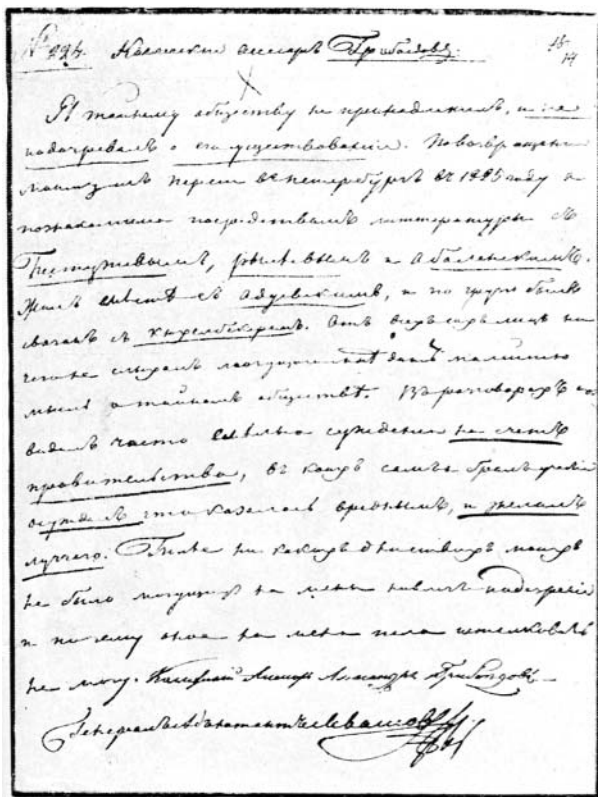 № 224. Коллежский ассесоръ Грибоѣдовъ.
Я тайному обществу не принадлежалъ, и не
подозревалъ о его существованіи. По возвращеніи
моемъ изъ Персіи въ Петербургъ въ 1825 году я
познакомился посредствомъ литтературы съ
Бестужевымъ, Рылѣевымъ и Оболенскимъ.
Жилъ вмѣстѣ съ Адуевскимъ, и по Грузіи былъ
связанъ съ Кюхельбекеромъ. Отъ всѣхъ сихъ лицъ ни
чего не слыхалъ могущего мнѣ дать малейшую
мысль о тайномъ обществѣ. Въ разговорахъ ихъ
видѣлъ часто смѣлыя сужденія на счетъ
правительства, въ коихъ самъ я бралъ участіе
осуждалъ что казалось вреднымъ, и желалъ
лучшего. Более ни какихъ дѣйствій моихъ
не было могущихъ на меня навлечь подозрѣніе
и почему оное на меня пало истолковать
не могу. Коллежскій Ассесоръ Александръ Грибоѣдовъ
Генералъ Адъютантъ Левашовъ